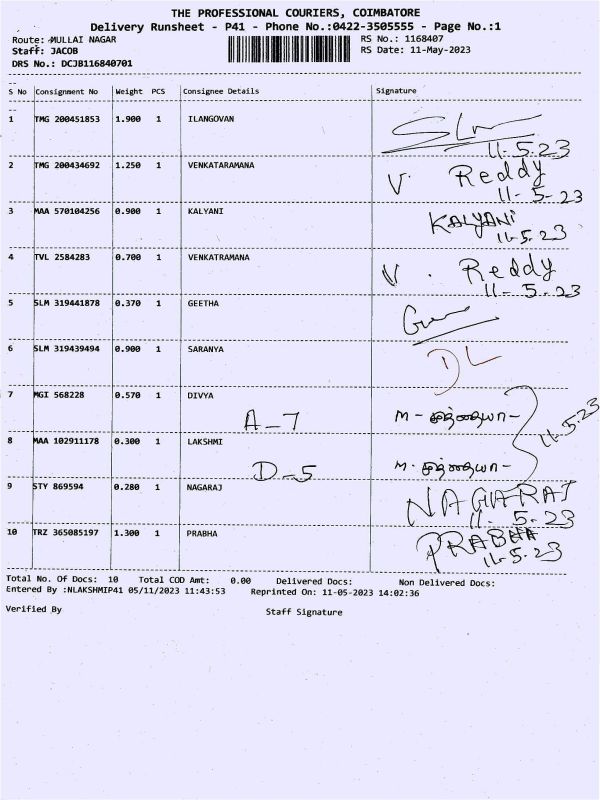 THE PROFESSIONAL COURIERS, COIMBATORE
Delivery Runsheet - P41 - Phone No.:0422-3505555 - Page No.:1
Route: MULLAI NAGAR RS No.: 1168407
Staff: JACOB RS Date: 11-May-2023
DRS No.: DCJB116840701
S No Consignment No Weight PCS Consignee Details Signature
1 TMG 200451853 1.900 1 ILANGOVAN
11.5.23
2 TMG 200434692 1.250 1 VENKATARAMANA V. Reddy
11-5-23
3 MAA 570104256 0.900 1 KALYANI KALYANI
11.5.23
4 TVL 2584283 0.700 1 VENKATRAMANA V. Reddy
11-5-23
5 SLM 319441878 0.370 1 GEETHA
6 SLM 319439494 0.900 1 SARANYA DL
7 MGI 568228 0.570 1 DIVYA
A-7 M- 11-5.23
8 MAA 102911178 0.300 1 LAKSHMI
D-5 M.
9 STY 869594 0.280 1 NAGARAJ NAGARAJ
11-5-23
10 TRZ 365085197 1.300 1 PRABHA PRABHA
11.5.23
Total No. Of Docs: 10 Total COD Amt: 0.00 Delivered Docs: Non Delivered Docs:
Entered By :NLAKSHMIP41 05/11/2023 11:43:53 Reprinted On: 11-05-2023 14:02:36
Verified By Staff Signature